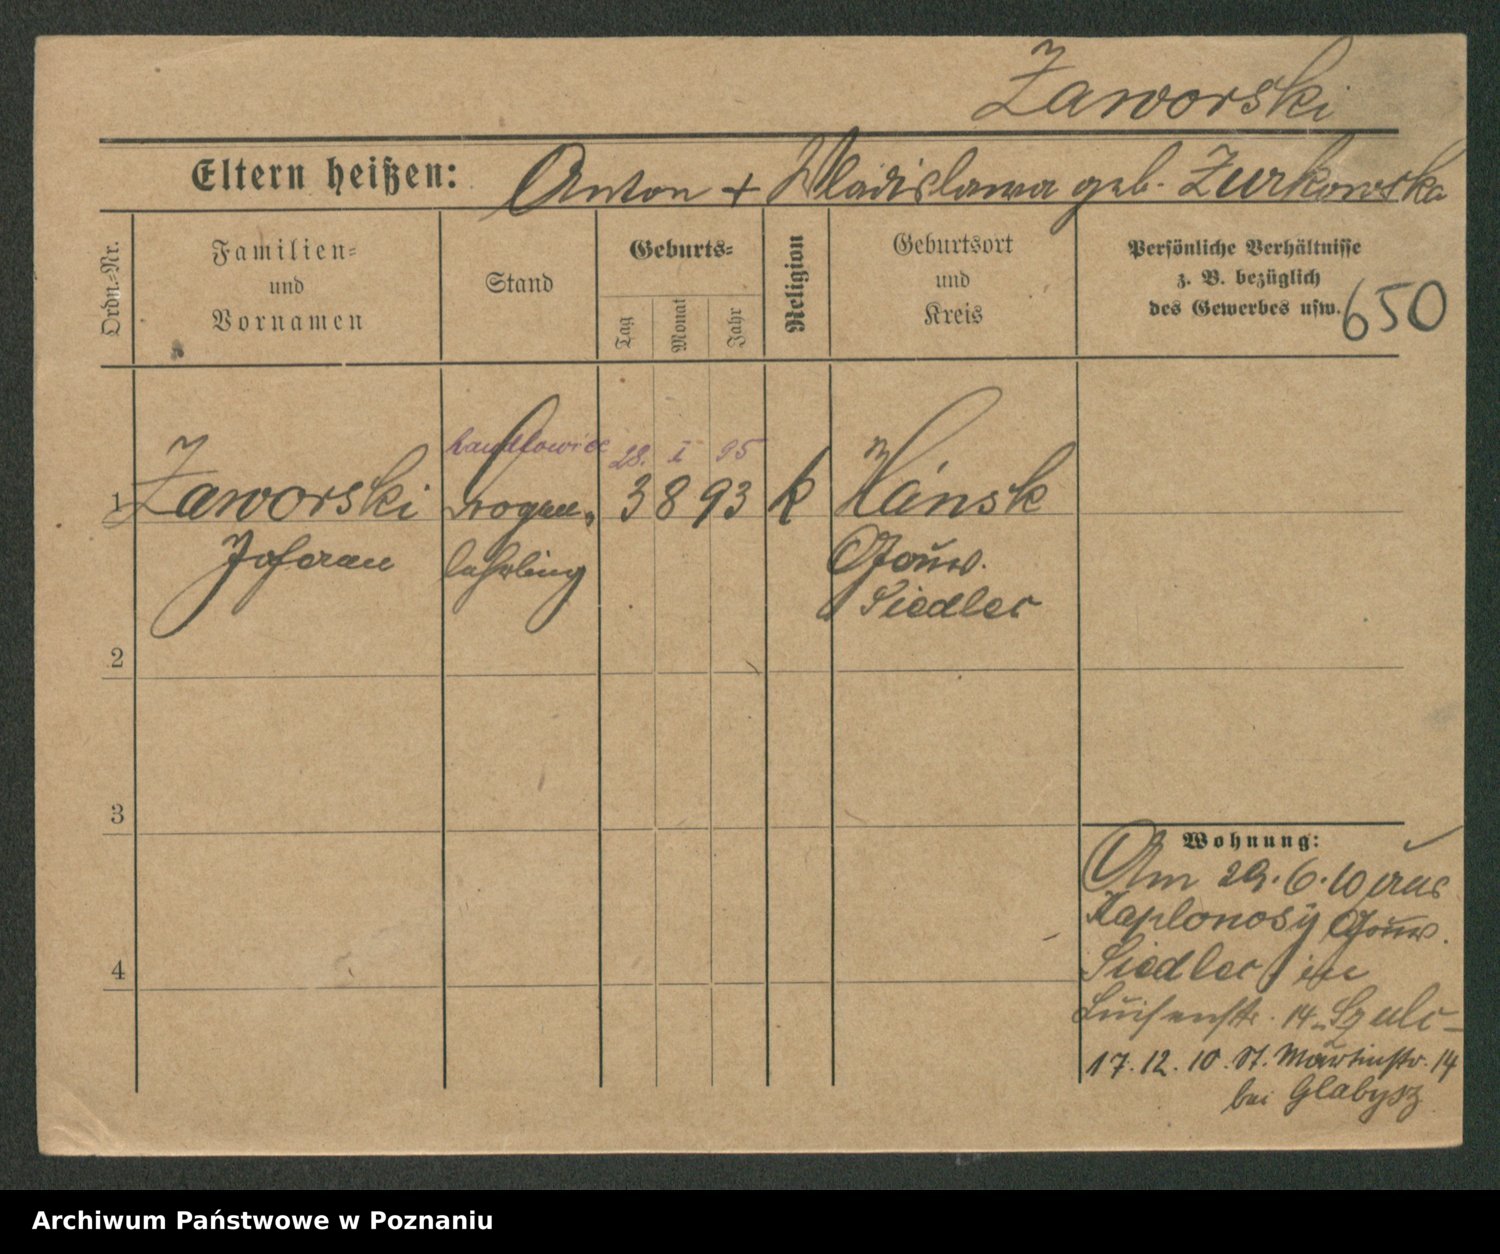 Zaworski
Eltern heißen: Anton + Wladislawa geb. Zurkowska
Ordn.-Nr.
Familien-
und
Vornamen
Stand
Geburts-
Tag
Monat
Jahr
Religion
Geburtsort
und
Kreis
Persönliche Verhältnisse
z. B. bezüglich
des Gewerbes usw.
650
handlowiec 28. I 95
1 Zaworski Drogen- 3 8 93 k Hańsk
lehrling Gouv.
Siedlec
2
3
4
Wohnung:
Am 29.6.10 aus
Kaplonosy Gouv.
Siedlec in
Luisenstr. 14 Szulc
17.12.10. St. Martinstr. 14
bei Glabysz
Archiwum Państwowe w Poznaniu